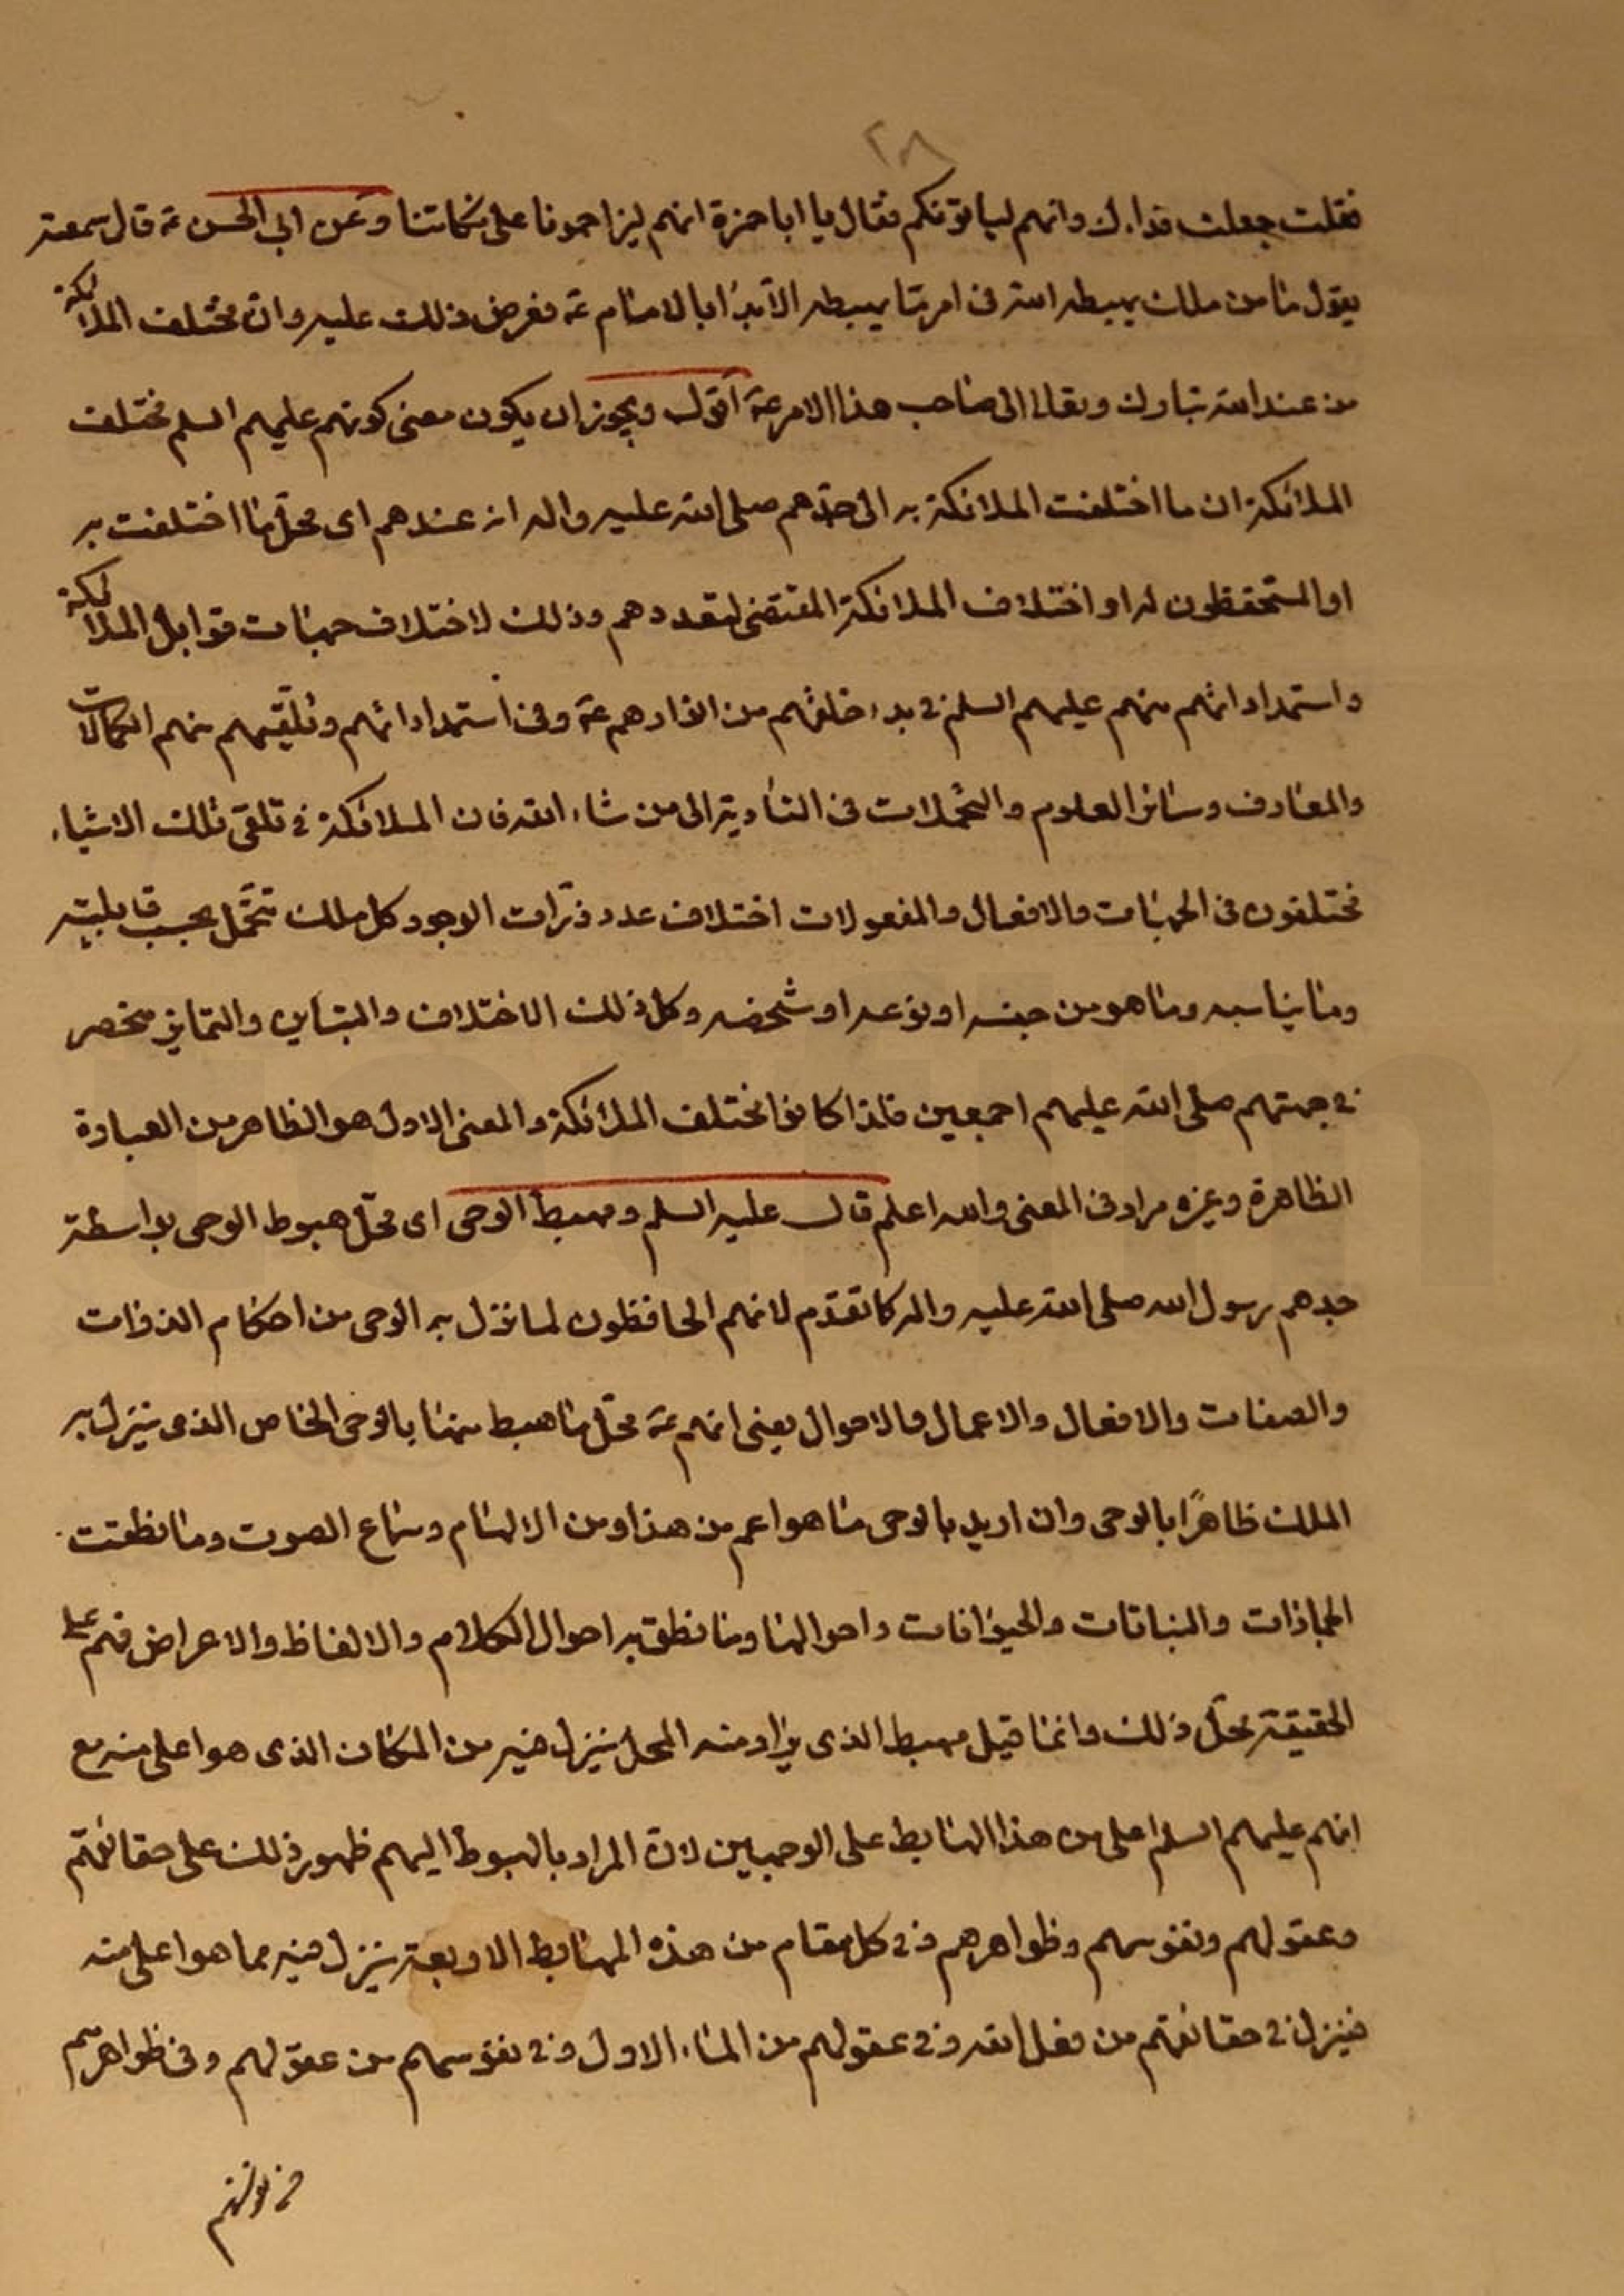 ٢٨
فقلت جعلت فداءك وانهم ليأتونكم فقال يا ابا حمزة انهم ليزاحمونا على تكاتنا وعن ابى الحسن ع قال سمعته
يقول ما من ملك يهبطه الله فى امر ما يهبطه الا بدأ بالامام ع فعرض ذلك عليه وان مختلف الملائكة
من عند الله تبارك وتعالى الى صاحب هذا الامر ع اقول ويجوز ان يكون معنى كونهم عليهم السلم مختلف
الملائكة ان ما اختلفت الملائكة به الى جدهم صلى الله عليه واله انه عندهم اى محل ما اختلفت به
او المستحفظون له او اختلاف الملائكة المقتضى لتعددهم وذلك لاختلاف جهات قوابل الملائكة
واستمداداتهم منهم عليهم السلم فى بدء خلقهم من انوارهم ع وفى استمداداتهم وتلقيهم منهم الكمالات
والمعارف وسائر العلوم والتحملات فى التأدية الى من شاء الله فان الملائكة فى تلقى تلك الاشياء
مختلفون فى الجهات والافعال والمفعولات اختلاف عدد ذرات الوجود كل ملك تحمل بحسب قابليته
وما يناسبه وما هو من جنسه او نوعه او شخصه وكل ذلك الاختلاف والتباين والتمايز منحصر
فى جهتهم صلى الله عليهم اجمعين فلذا كانوا مختلف الملائكة والمعنى الاول هو الظاهر من العبارة
الظاهرة وغيره مراد فى المعنى والله اعلم قال عليه السلم ومهبط الوحى اى محل هبوط الوحى بواسطة
جدهم رسول الله صلى الله عليه واله كما تقدم لانهم الحافظون لما نزل به الوحى من احكام الذوات
والصفات والافعال والاعمال والاحوال يعنى انهم ع محل ما هبط منها بالوحى الخاص الذى ينزل به
الملك ظاهرًا بالوحى وان اريد بالوحى ما هو اعم من هذا ومن الالهام وسماع الصوت وما نطقت
الجمادات والنباتات والحيوانات واحوالها وما نطق به احوال الكلام والالفاظ والاعراض فهم على
الحقيقة محل ذلك وانما قيل مهبط الذى يراد منه المحل ينزل فيه من المكان الذى هو اعلى منه مع
انهم عليهم السلم اعلى من هذا الهابط على الوجهين لان المراد بالهبوط اليهم ظهور ذلك على حقائقهم
وعقولهم ونفوسهم وظواهرهم فى كل مقام من هذه المهابط الاربعة ينزل فيه مما هو اعلى منه
فينزل فى حقائقهم من فعل الله وفى عقولهم من الماء الاول وفى نفوسهم من عقولهم وفى ظواهرهم